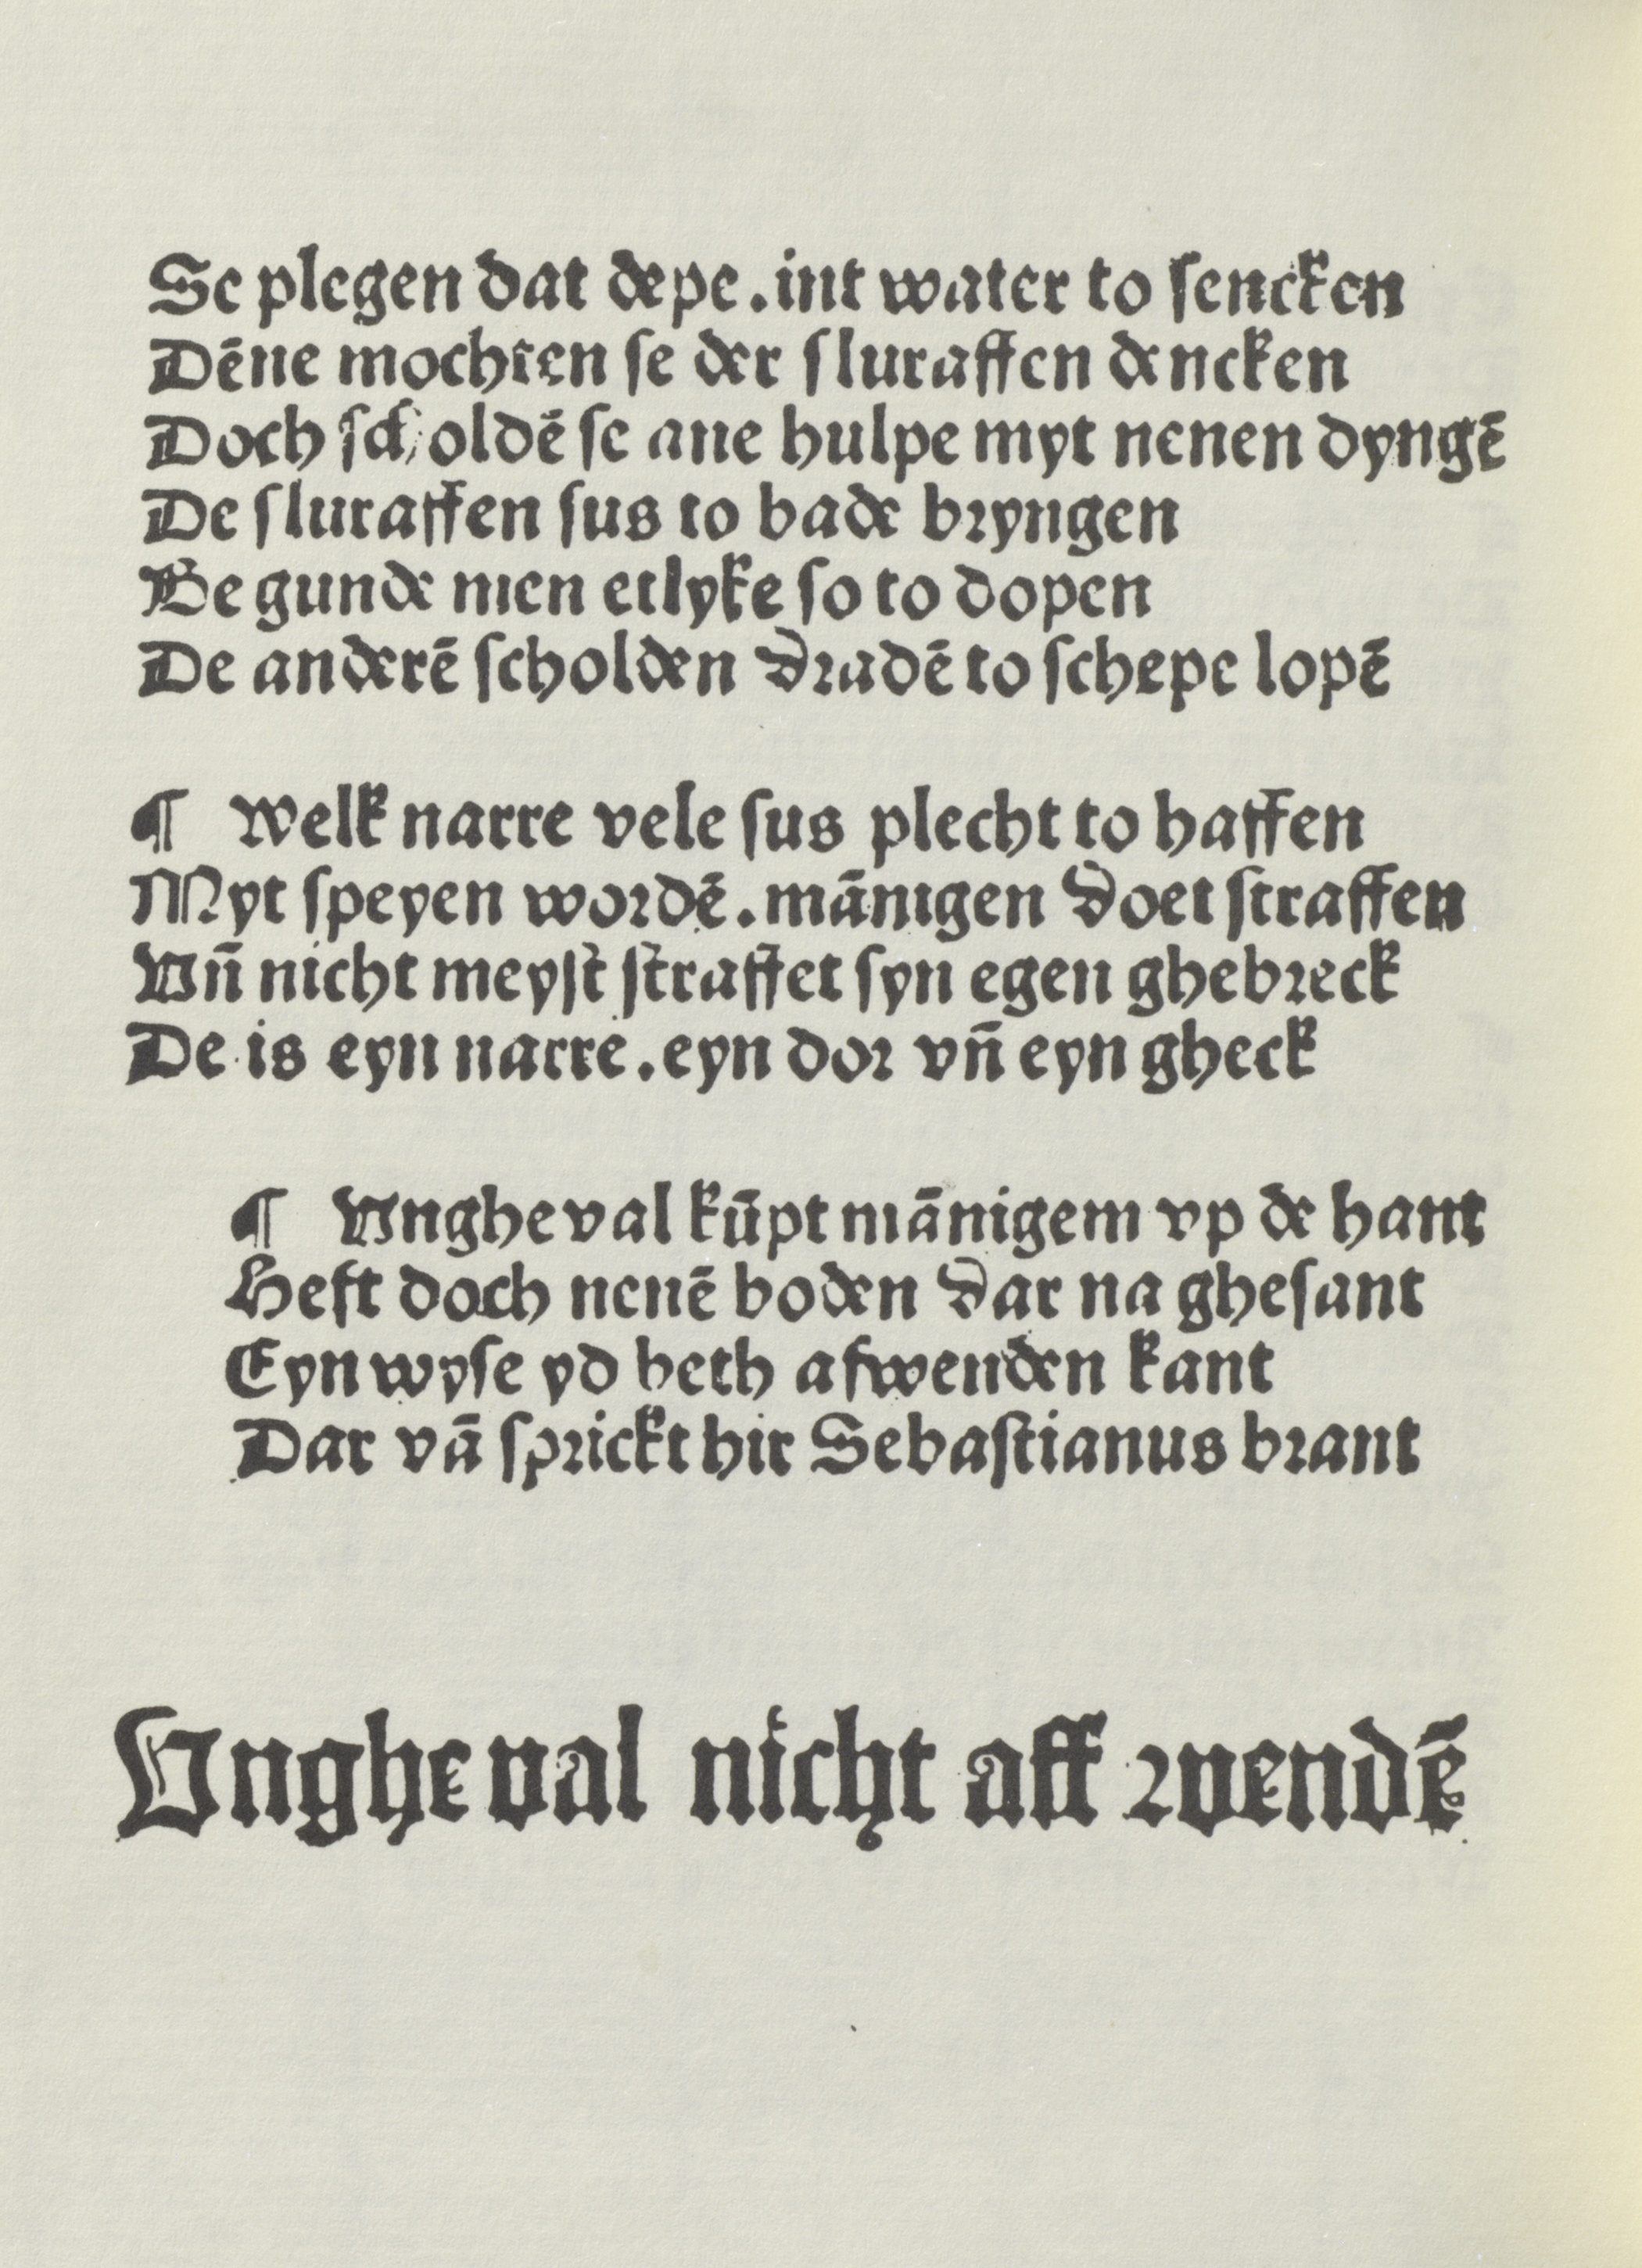 Se plegen dat depe.int water to ſencken
Dēne mochten ſe der ſluraffen dencken
Doch ſch oldē ſe ane hulpe myt nenen dyngē
De ſluraffen ſus to bade bꝛyngen
Be gunde men etlyke ſo to dopen
De anderē ſcholden dꝛadē to ſchepe lopē
¶ Welk narre vele ſus plecht to haffen
Myt ſpeyen woꝛdē.mānigen doet ſtraffen
Vn̄ nicht meyſt ſtraffet ſyn egen ghebꝛeck
De is eyn narre.eyn doꝛ vn̄ eyn gheck
¶ Vngheval kūpt mānigem vp de hant
Heft doch nenē boden dar na gheſant
Eyn wyſe yd beth afwenden kant
Dar vā ſpꝛickt hir Sebaſtianus bꝛant
Vngheval nicht aff wendē